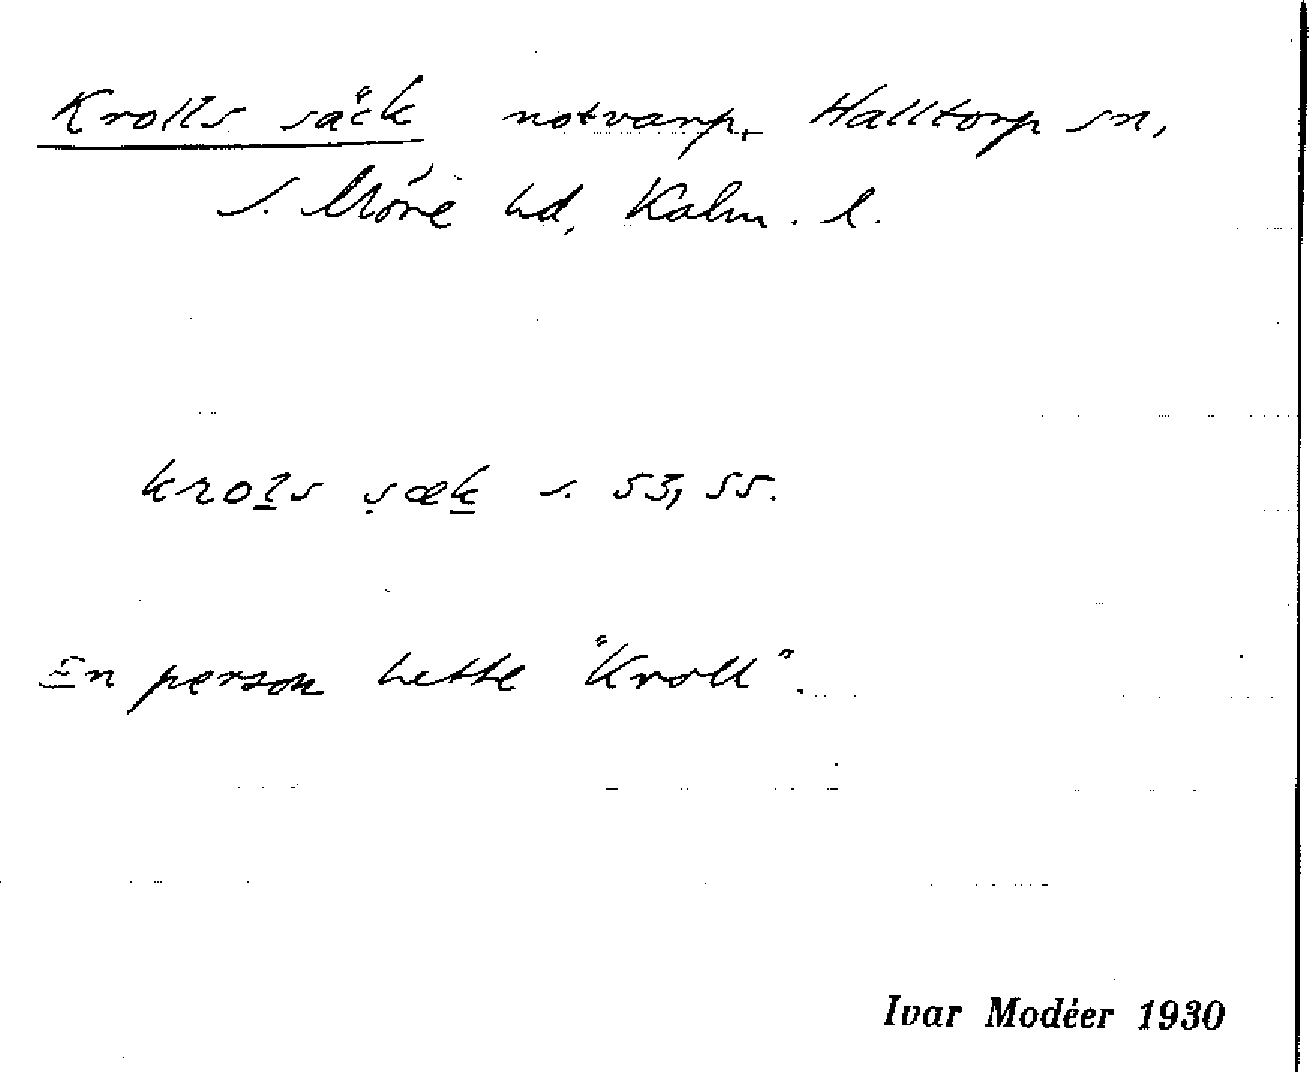 Krolls säck notvarp, Halltorp sn,
S. Möre hd, Kalm. l.
krols sæk s. 53, 55.
En person hette "Kroll".
Ivar Modéer 1930